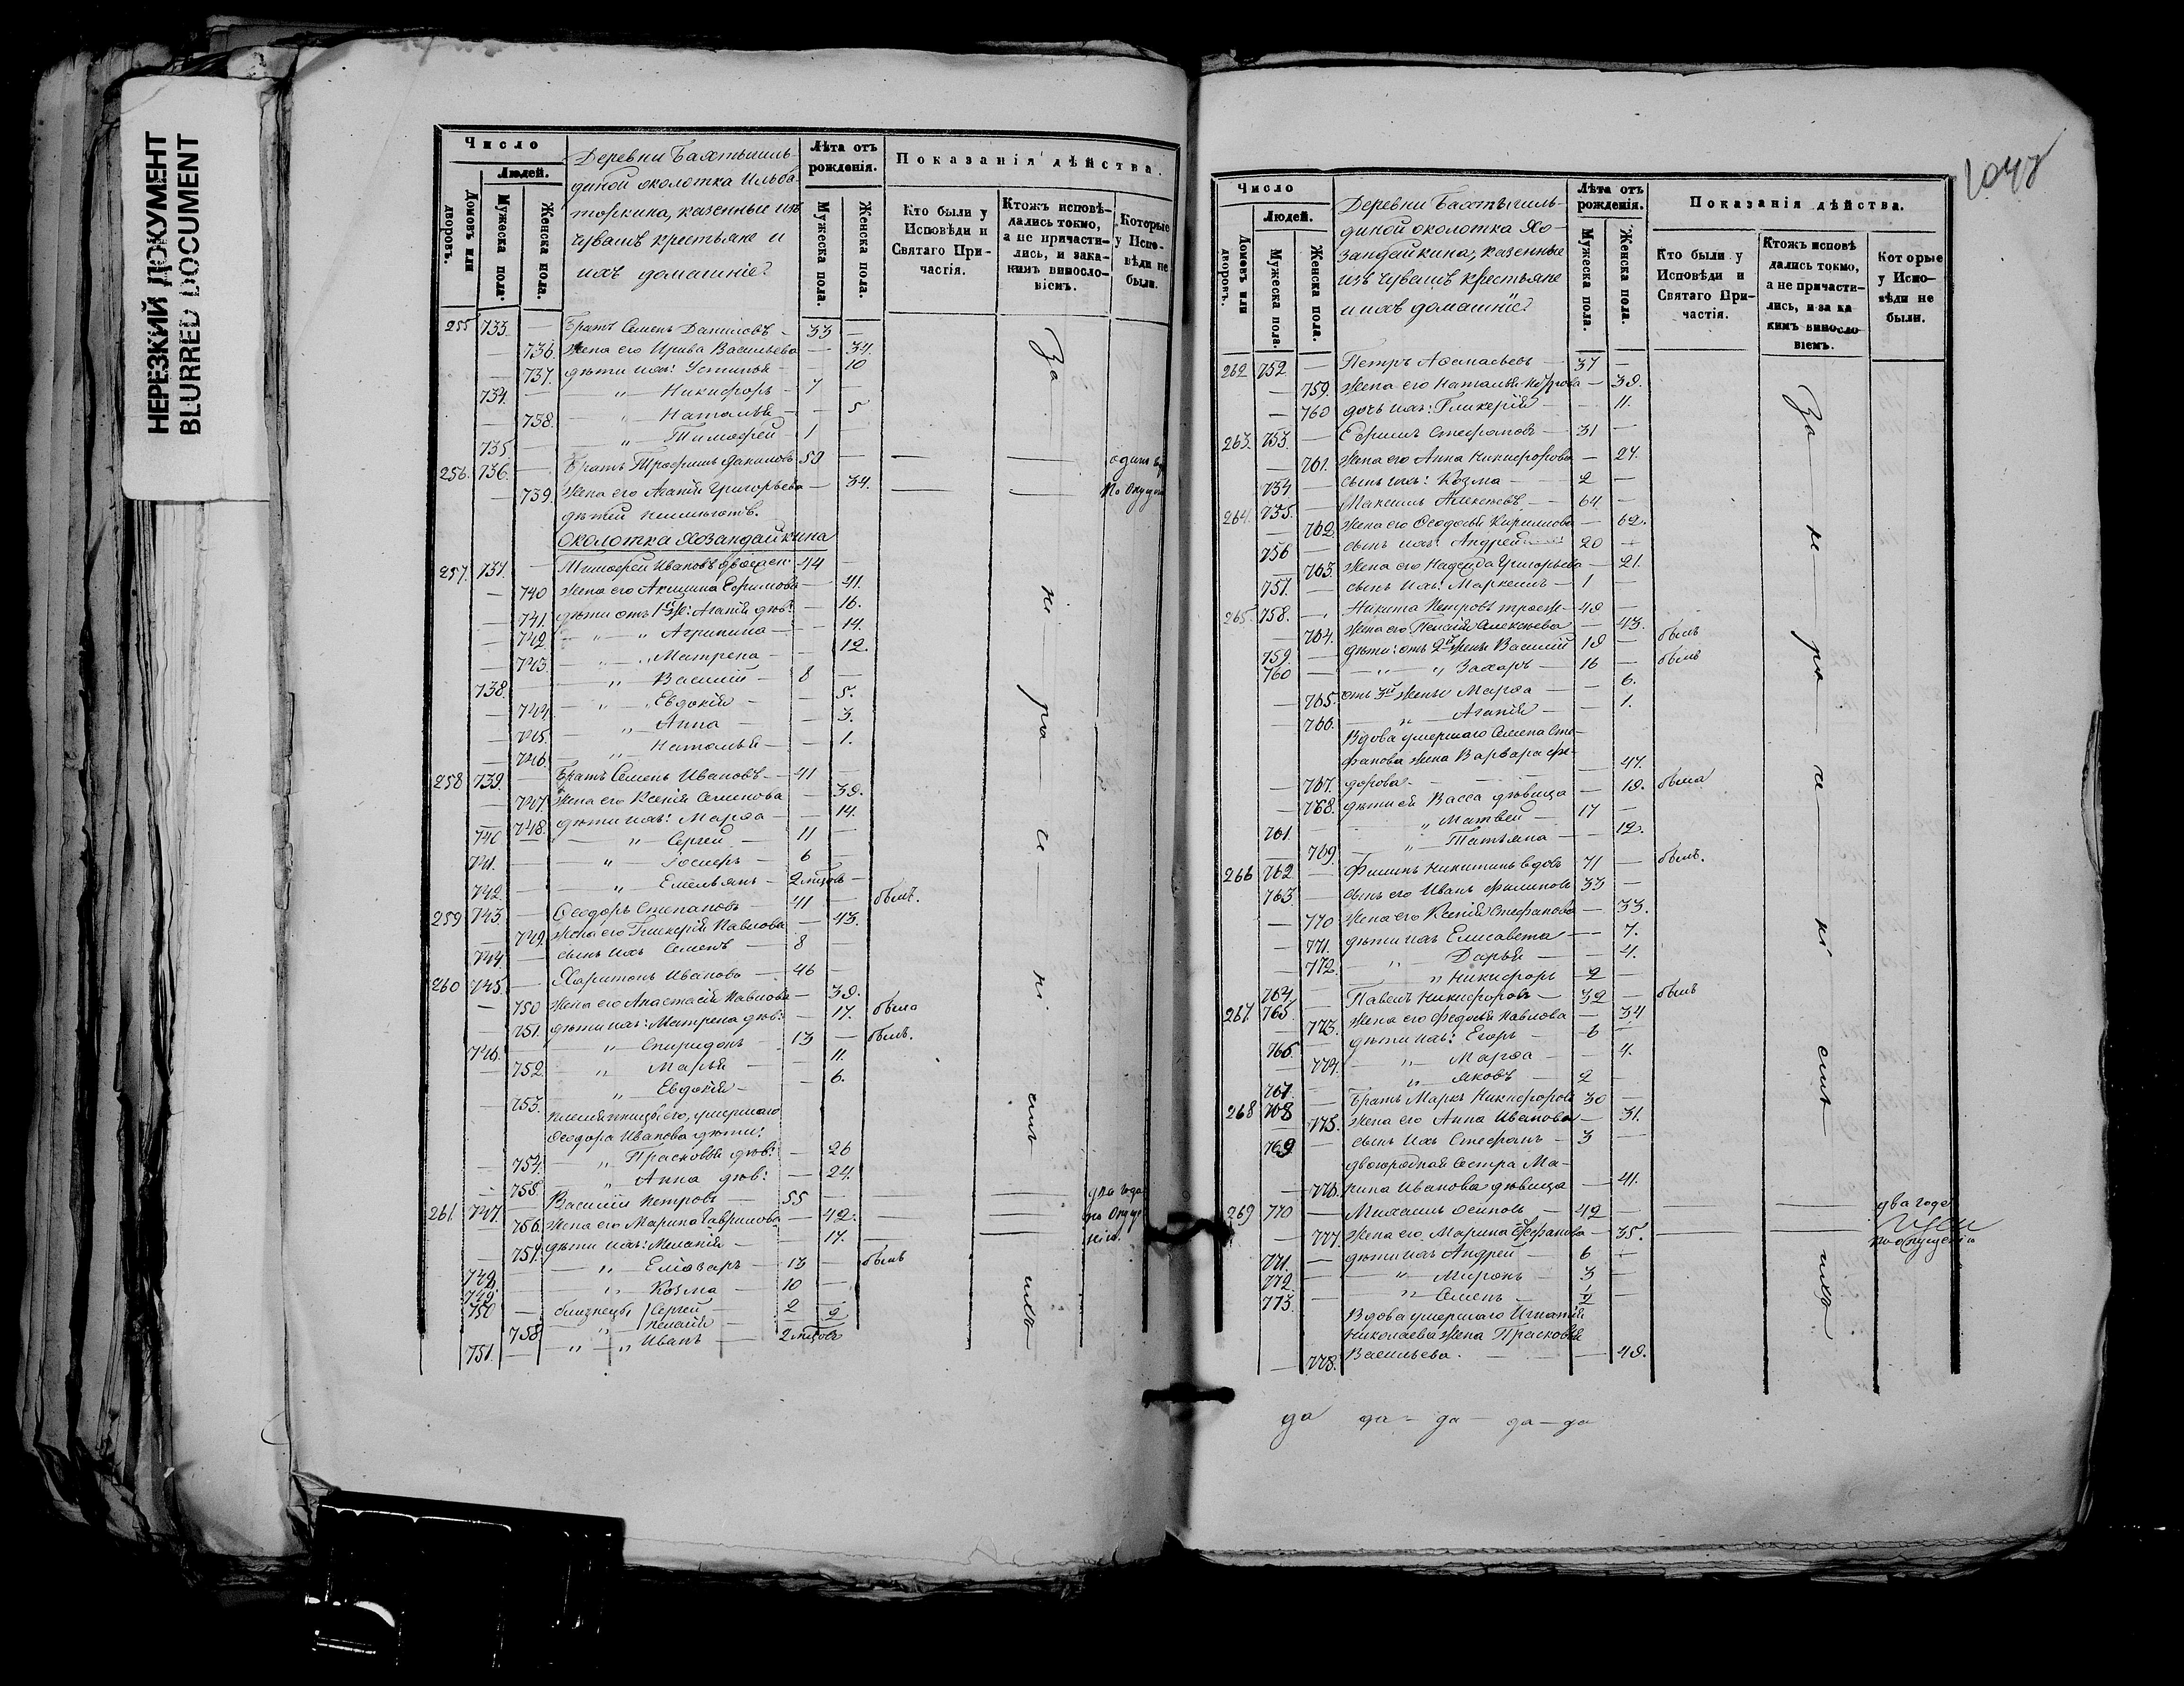 НЕРЕЗКИЙ ДОКУМЕНТ
BLURRED DOCUMENT
Число
Людей.
Домовъ или дворовъ.
Мужеска пола.
Женска пола.
Деревни Бахтыгиль-
диной околотка Ильба-
торкина, казенные изъ
Чувашъ крестьяне и
ихъ домашніе?
Лѣта отъ рожденія.
Мужеска пола.
Женска пола.
Показанія дѣйства.
Кто были у Исповѣди и Святаго При-частія.
Ктожъ исповѣ-дались токмо, а не причасти-лись, и зака-кимъ винosло-віемъ.
Которые у Испо-вѣди не были.
255 733 — Братъ Семенъ Даниловъ — 33 —
— 736. Жена его Ирина Васильева — 34.
— 737. дѣти ихъ: Устинья — — 10
734. — " — Никифоръ — 7 —
— 738. — " — Наталья — — 5
735. — " — Тимофей — 1 —
256. 736. — Братъ Трофимъ Даниловъ 59 — — — одинъ годъ
— 739. Жена его Агапія Григорьева — 34. — — по опущен
дѣтей неимѣютъ.
Околотка Хозандайкина
257. 737. — Тимофей Ивановъ двоежен: 44 —
— 740 Жена его Акилина Ефимова — 41.
— 741. дѣти отъ 1й ж: Агапія дѣв: — 16.
— 742. — " — " Агрипина — — 14.
— 743. — " — " Матрена — — 12.
738. — — " — Василій — 8 —
— 744. — " — " Евдокія — — 5.
— 745. — " — Анна — — 3.
— 746. — " — Наталья — — 1.
258 739. — Братъ Семенъ Ивановъ — 41 —
— 747. Жена его Ксенія Семенова — 39.
— 748. дѣти ихъ: Марѳа — — 14.
740 — — " — Сергей — 11 —
741. — — " — Іосифъ — 6 —
742. — — " — Емельянъ — 2 мѣсяцов —
259 743. — Ѳеодоръ Степановъ — 41 — былъ.
— 749. Жена его Гликерія Павлова — 43.
744. — сынъ ихъ Семенъ — 8 —
260 745. — Харитонъ Ивановъ — 46 —
— 750 Жена его Анастасія Павлова — 39.
— 751. дѣти ихъ: Матрена дѣв: — 17. была
746. — " — Спиридонъ — 13 — былъ.
— 752. — " — Марья — — 11.
— 753. — " — Евдокія — — 6.
племянницы его, умершаго
Ѳеодора Иванова дѣти:
— 754. — " — Прасковья дѣв: — 26
— 755. — " — Анна дѣв: — 24.
261. 747. — Василій Петровъ — 55 — — два года
— 756. Жена его Марина Гаврилова — 42. — по опуще
— 757. дѣти ихъ: Меланія — — 17. — нію.
748. — " — Елеазаръ — 13 — былъ
749. — " — Козма — 10 —
750 — близнецы Сергей — 2 —
758. " — Пелагія — — 2
751. — " — " Иванъ — 2 мѣсяцов
За не ра се ні емъ ихъ
1048
Число
Людей.
Домовъ или дворовъ.
Мужеска пола.
Женска пола.
Деревни Бахтыгиль-
диной околотка Хо-
зандайкина, казенные
изъ Чувашъ крестьяне
и ихъ домашніе?
Лѣта отъ рожденія.
Мужеска пола.
Женска пола.
Показанія дѣйства.
Кто были у Исповѣди и Святаго При-частія.
Ктожъ исповѣ дались токмо, а не причасти-лись, и за ка кимъ винoсло віемъ.
Которые у Испо-вѣди не были.
262 752 — Петръ Аѳанасьевъ — 37 —
— 759. Жена его Наталья Петрова — 39.
— 760 дочь ихъ: Гликерія — — 11.
263. 753. — Ефримъ Стефановъ — 31 —
— 761. Жена его Анна Никифорова — 24.
754 — сынъ ихъ: Козма — 2 —
264. 755. — Максимъ Алексѣевъ — 64. —
— 762. Жена его Ѳеодосья Кирилова — 62.
756 — сынъ ихъ: Андрей — 20 —
— 763. Жена его Надежда Григорьева — 21.
757. — сынъ ихъ: Маркелъ — 1 —
265. 758. — Никита Петровъ троеж — 49 —
— 764. Жена его Пелагія Алексѣева — 43.
759. — дѣти: отъ 2й жены Василій 19 — былъ
760 — " — " Захаръ — 16 — былъ
— 765. отъ 3й жены Марѳа — — 6.
— 766. — " — Агапія — — 1.
Вдова умершаго Семена Сте-
фанова жена Варвара Фе-
— 767. дорова — — 47.
— 768. дѣти ея Васса дѣвица — 19. была
761. — " Матвей — 17 —
— 769. — " Татьяна — — 12.
266 762 — Филипъ Никитинъ вдовъ 71 — былъ.
763. — сынъ его Иванъ Филиповъ 33 —
— 770 Жена его Ксенія Стефанова — 33.
— 771. дѣти ихъ Елисавета — — 7.
— 772. — " — Дарья — — 4.
764. — " Никифоръ 2 —
267. 765. — Павелъ Никифоровъ — 32 — былъ
— 773. Жена его Федосья Павлова — 34
766. — дѣти ихъ: Егоръ — 6 —
— 774. " — Марѳа — — 4.
767. — " — Яковъ — 2 —
268 768 — Братъ Маркъ Никифоровъ 30 —
— 775. Жена его Анна Иванова — 31.
769 — сынъ ихъ Стефанъ — 3 —
двоюродная сестра Ма-
— 776. рина Иванова дѣвица — 41.
269 770 — Михаилъ Осиповъ — 42 — — два года
— 777. Жена его Марина Стефанова — 35. — по опущенію
771. — дѣти ихъ Андрей — 6 —
772. — " — Миронъ — 3 —
773. — " — Семенъ — 1/2 —
Вдова умершаго Игнатія
Николаева жена Прасковья
— 778. Васильева. — — 49.
За не ра се ні емъ ихъ
да да — да — да — да